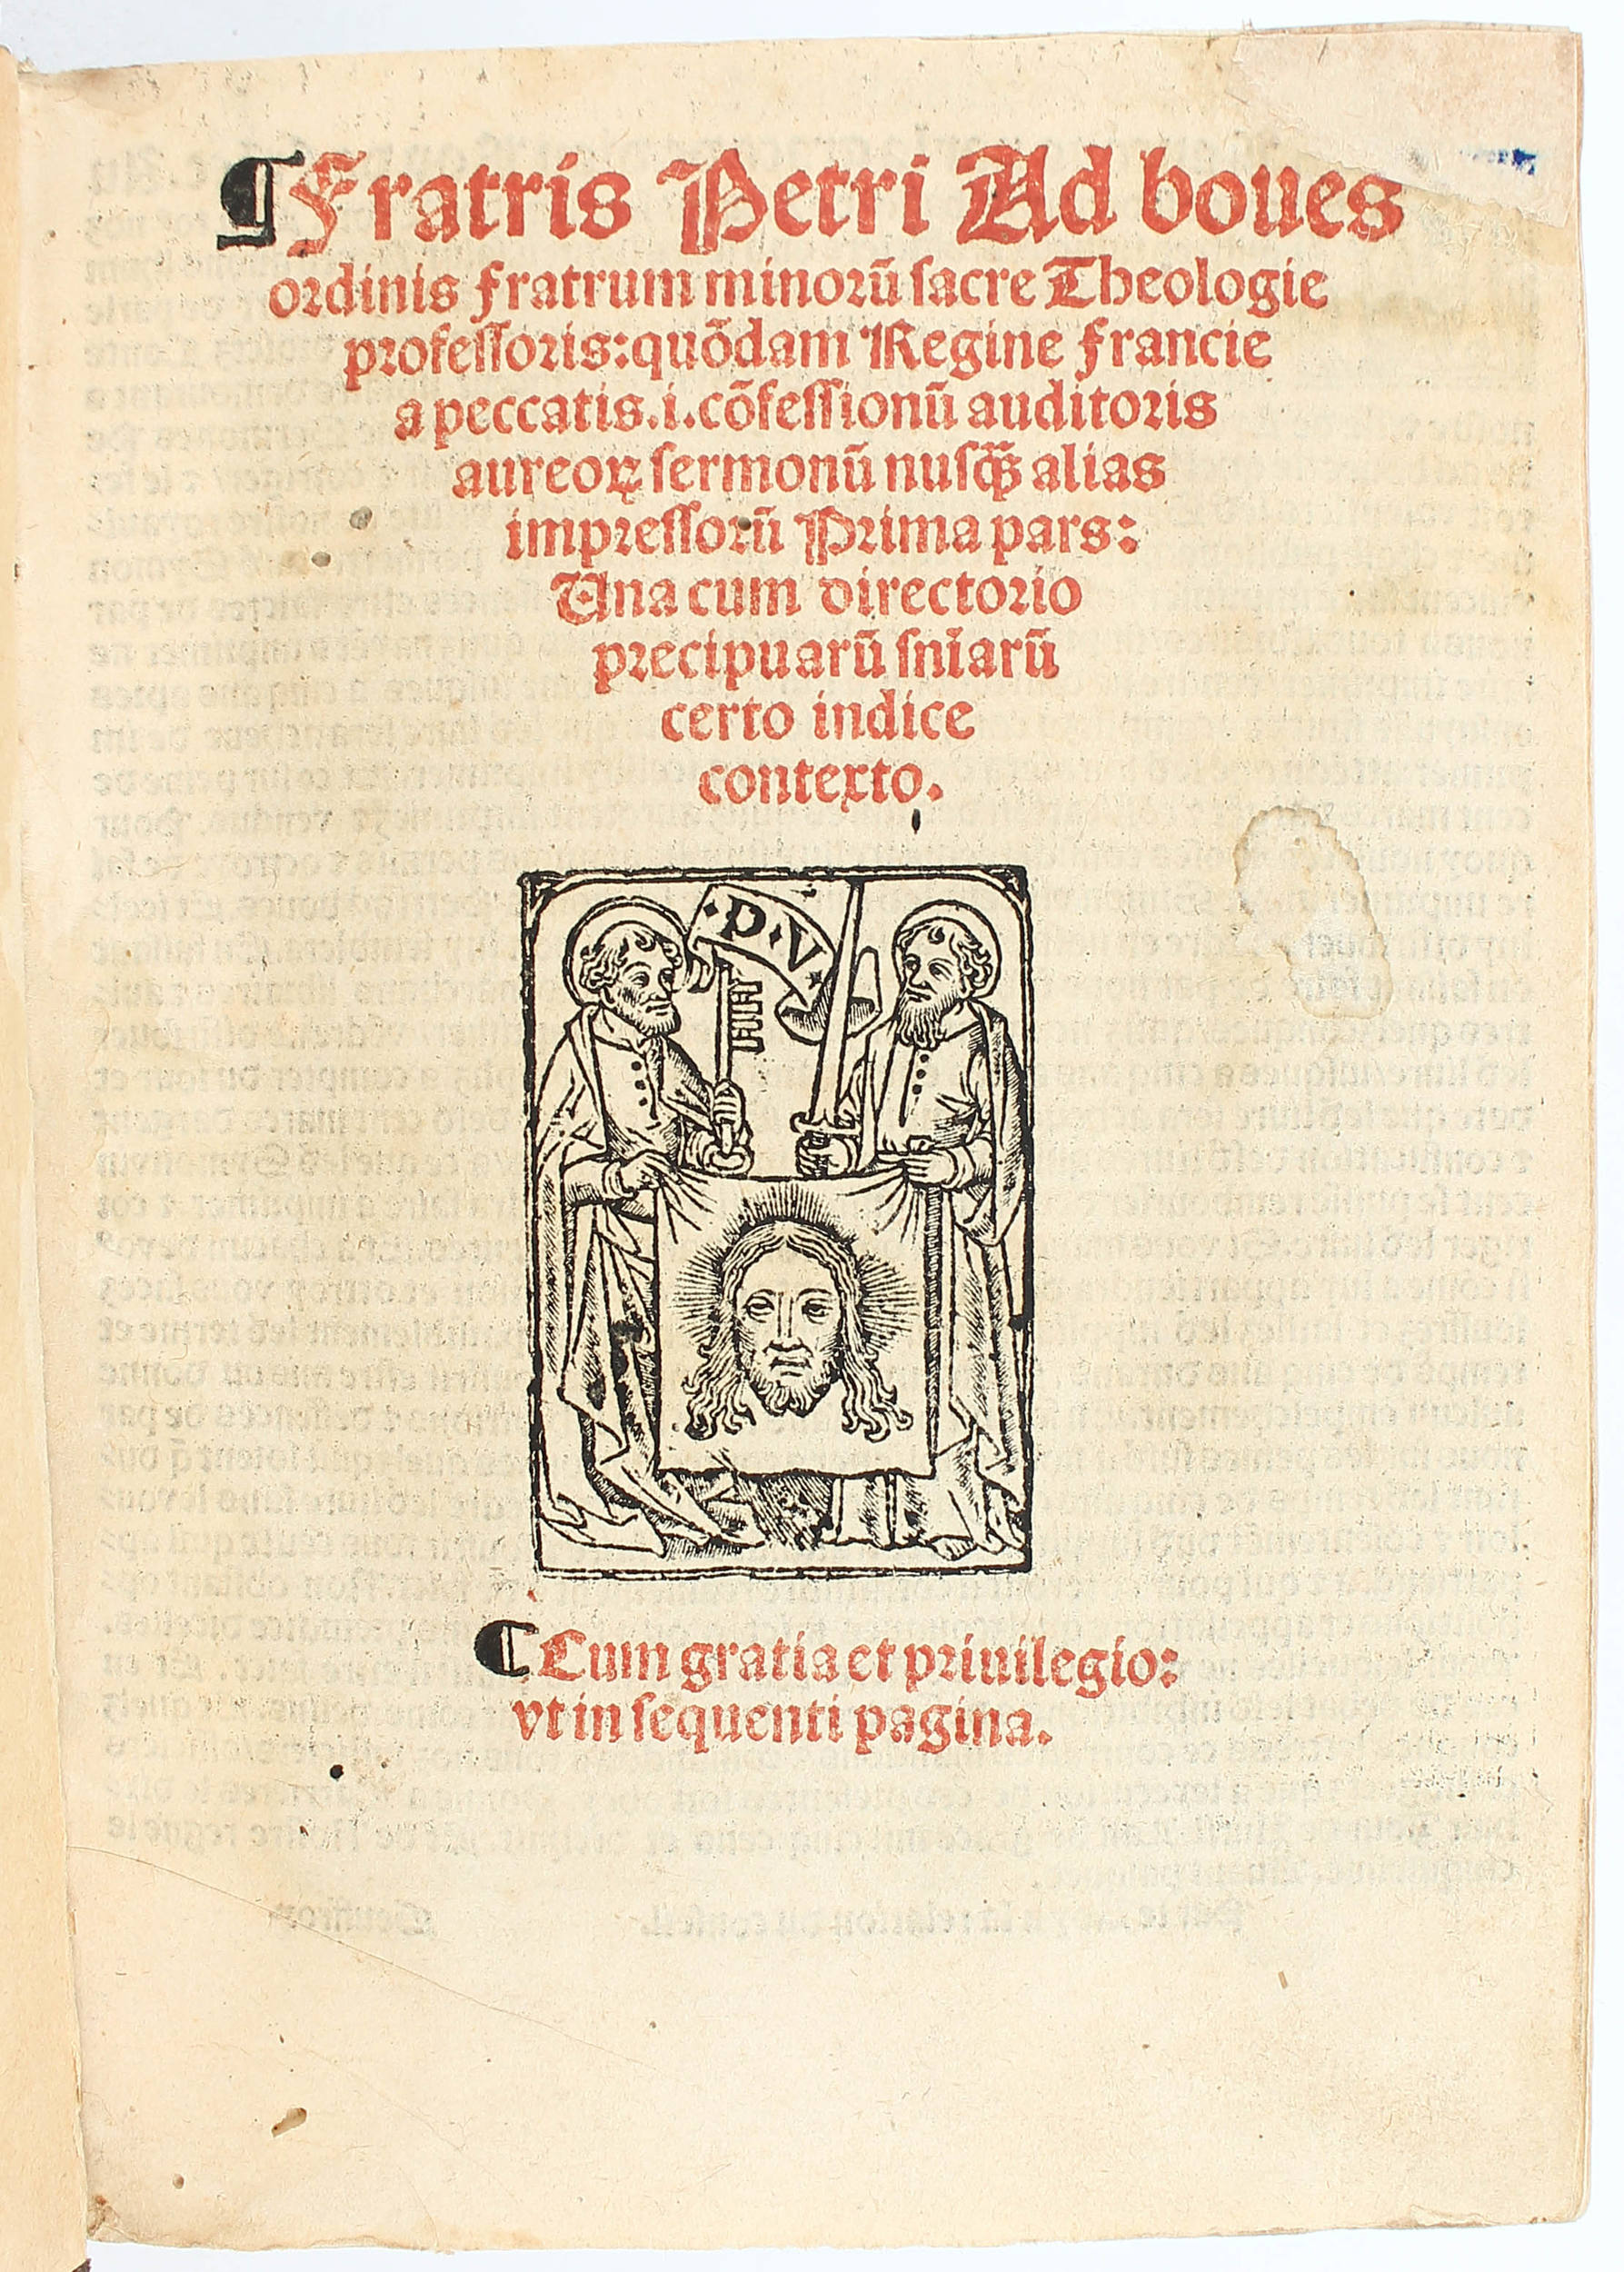 ¶Fratris Petri Ad boues
ordinis fratrum minorū sacre Theologie
professoris:quōdam Regine francie
a peccatis.i.cōfessionū auditoris
aureoꝝ sermonū nusq̃ꝫ alias
impressorū Prima pars:
Una cum directorio
precipuarū sn̄iarū
certo indice
contexto.
·P·V·
¶Cum gratia et priuilegio:
vt in sequenti pagina.